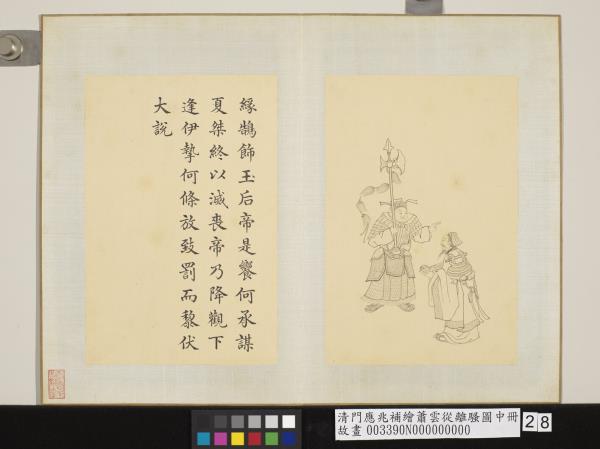 緣鵠飾玉后帝是饗何承謀
夏桀終以滅喪帝乃降觀下
逢伊摯何條放致罰而黎伏
大說
清門應兆補繪蕭雲從離騷圖中冊
故畫 003390N000000000
28